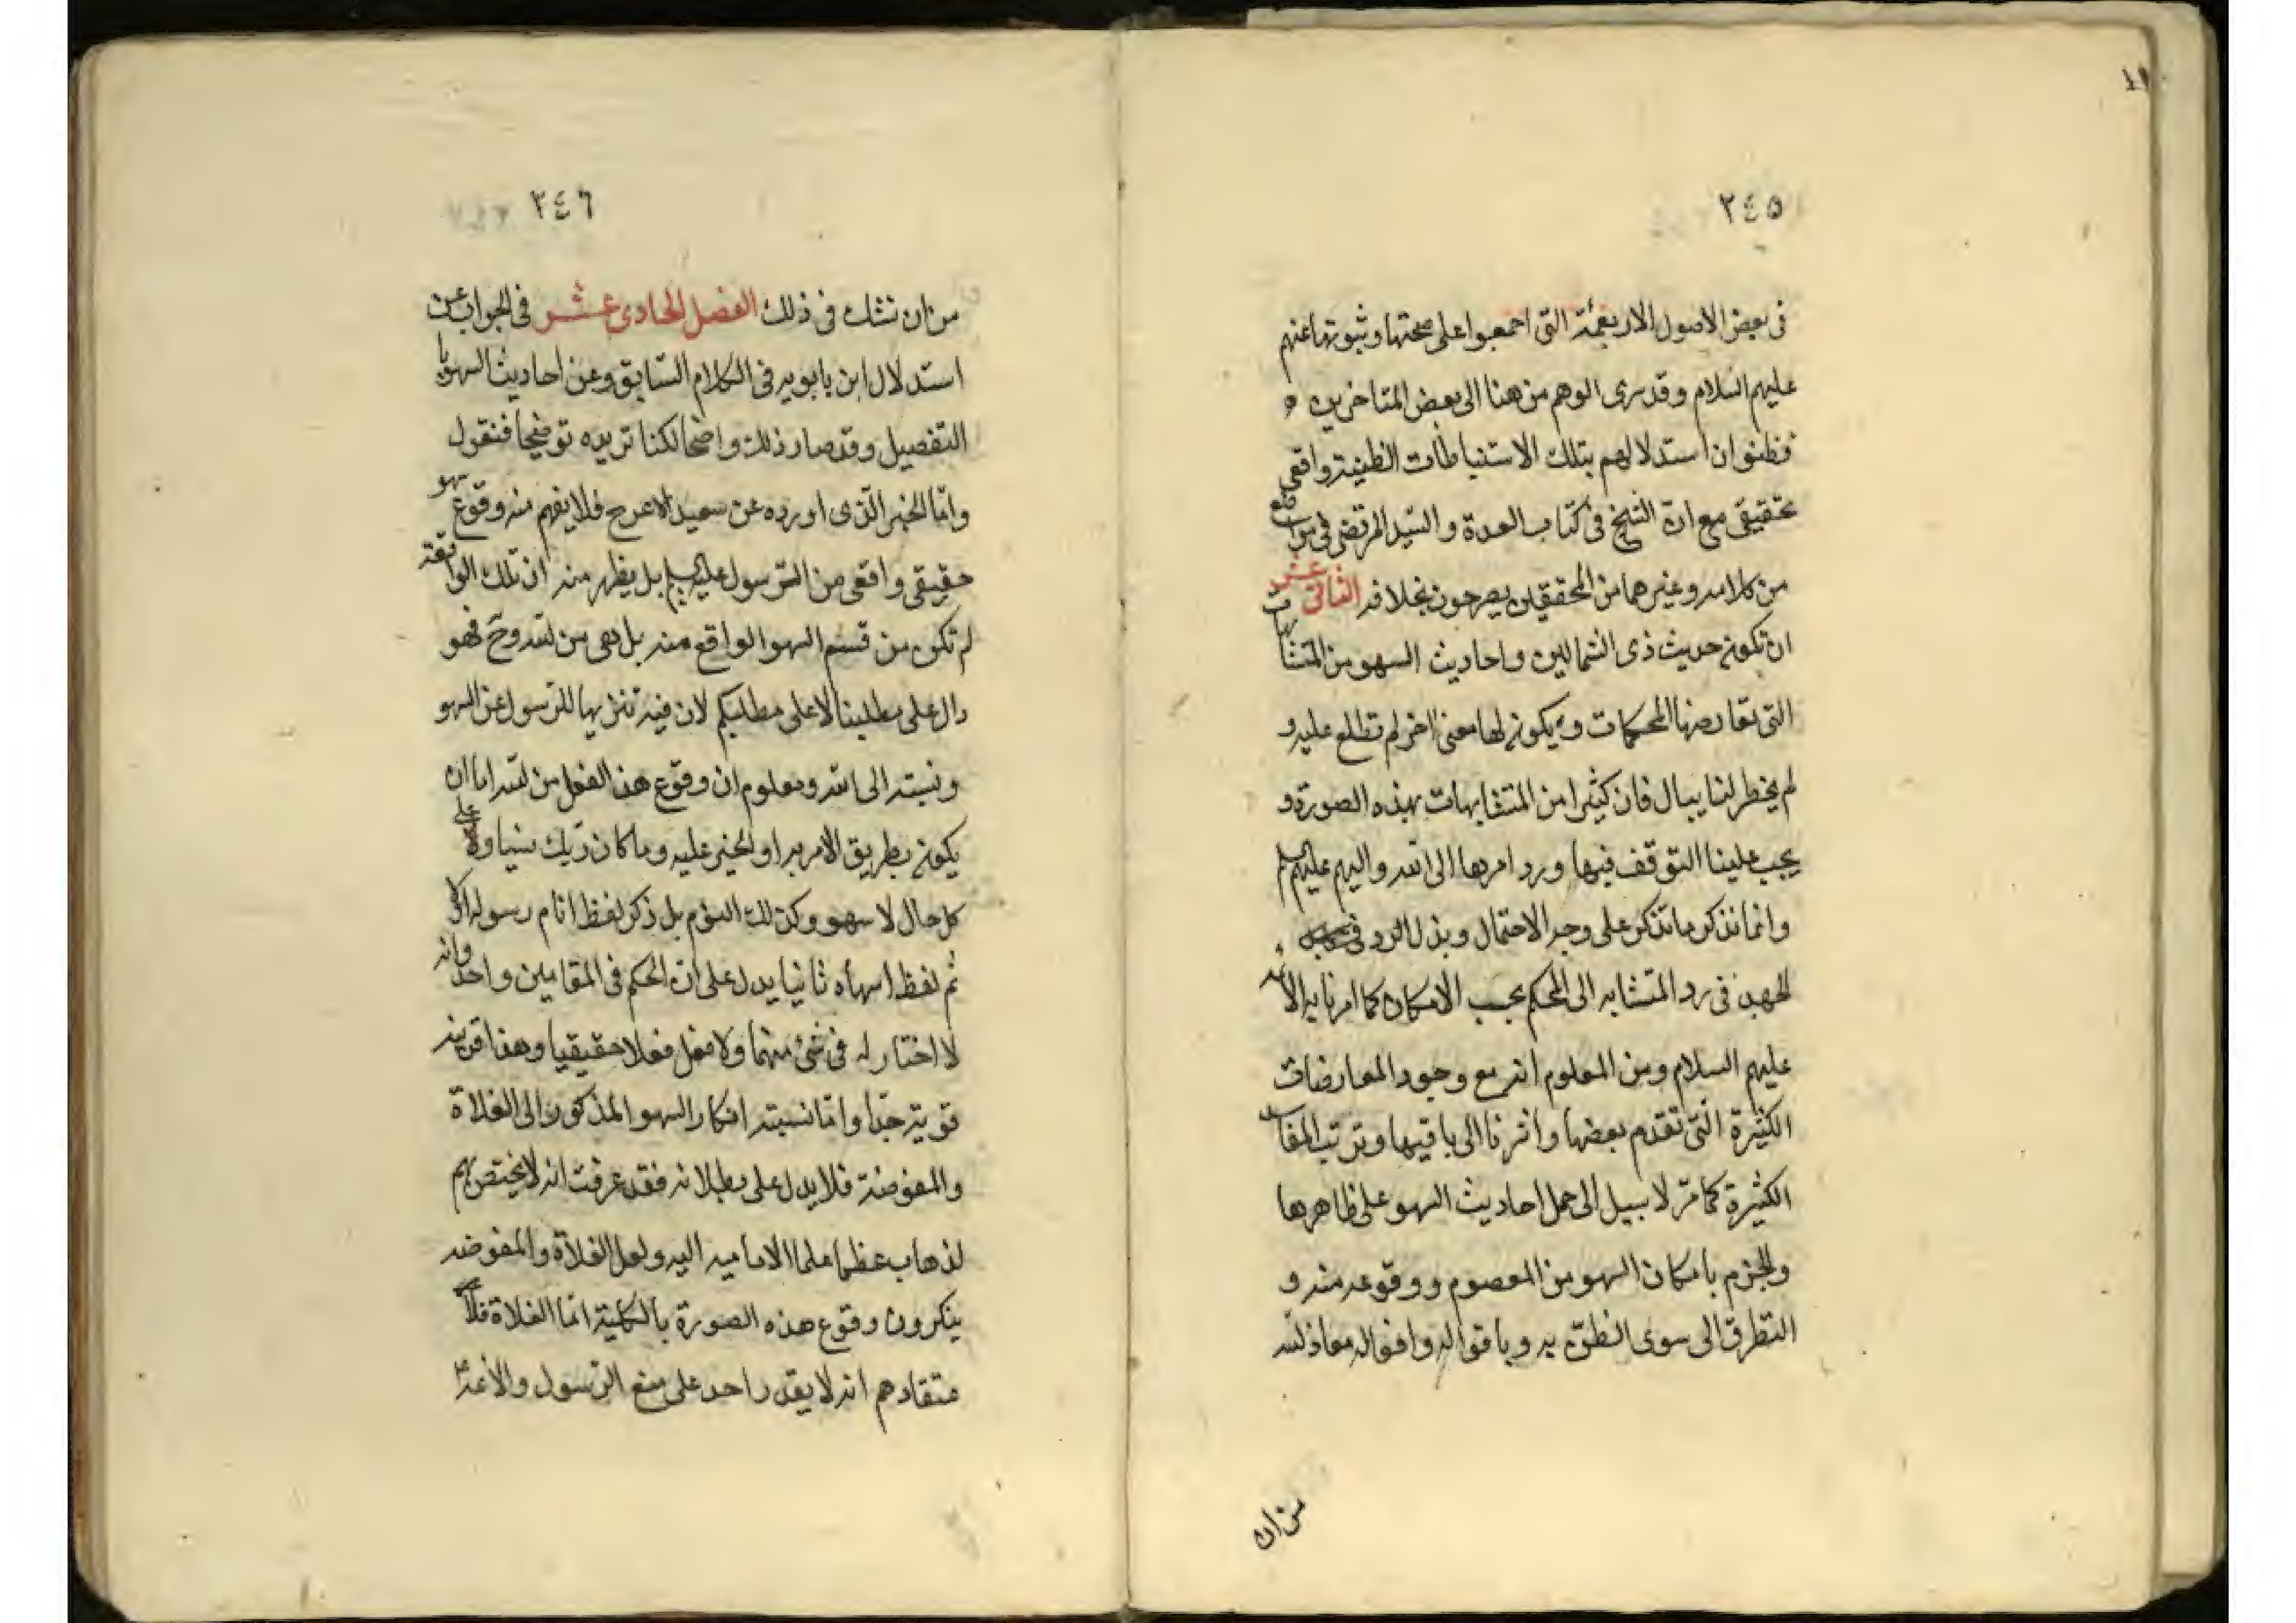 ٢٤٥
فى بعض الاصول الاربعمئة التى اجمعوا على صحتها وثبوتها عنهم
عليهم السلام وقد سرى الوهم من هنا الى بعض المتاخرين
فظنوا ان استدلالهم بتلك الاستنباطات الظنية واقعى
تحقيقى مع ان الشيخ فى كتاب العدة والسيد المرتضى فى مواضع
من كلامه وغيرهما من المحققين يصرحون بخلافه الثانى عشر
ان تكون حديث ذى الشمالين واحاديث السهو من المتشابهات
التى تعارضها المحكمات ويكون لها معنى اخر لم تطلع عليه و
لم يخطر لنا ببال فان كثيرا من المتشابهات بهذه الصورة و
يجب علينا التوقف فيها ورد امرها الى الله واليهم عليهم
وانما نذكر ما نذكر على وجه الاحتمال وبذل الرو فى
الجهد فى رد المتشابه الى المحكم بحسب الامكان كما امرنا به الائمه
عليهم السلام ومن المعلوم انه مع وجود المعارضات
الكثيرة التى تقدم بعضها واشرنا الى باقيها وترتب المفاسد
الكثيرة كما مر لا سبيل الى حمل احاديث السهو على ظاهرها
والجزم بامكان السهو من المعصوم ووقوعه منه و
التطرق الى سوى الظن به وباقواله وافعاله معاذ لله
من ان
٢٤٦
من ان نشك فى ذلك الفصل الحادى عشر فى الجواب عن
استدلال ابن بابويه فى الكلام السابق وعن احاديث السهو با
التفصيل وقد صار ذلك واضحا لكنا نزيده توضيحا فنقول
واما الخبر الذى اورده عن سعيد الاعرج فلا يفهم منه وقوع سهو
حقيقى واقعى من الرسول عليه السلم بل يظهر منه ان تلك الواقعة
لم تكن من قسم السهو الواقع منه بل هى من لله وح فهو
دال على مطلبنا لا على مطلبكم لان فيه تنزيها للرسول عن السهو
ونسبته الى الله ومعلوم ان وقوع هذا الفعل من لله اما ان
يكون بطريق الامر به او الجبر عليه وما كان ربك نسيا ولا على
كل حال لا سهو وكذلك النوم بل ذكر لفظ انام رسوله اولا
ثم لفظ اسهاه ثانيا يدل على ان الحكم فى المقامين واحد وانه
لا اختار له فى شئ منهما ولا فعل فعلا حقيقيا وهذا قرينه
قوية جدا واما نسبته انكار السهو المذكور الى الغلاة
والمفوضة فلا يدل على بطلانه فقد عرفت انه لا يختص بهم
لذهاب عظما علما الاماميه اليه ولعل الغلاة والمفوضه
ينكرون وقوع هذه الصورة بالكلية اما الغلاة فلا
عتقادهم انه لا يقدر احد على منع الرسول والائمة